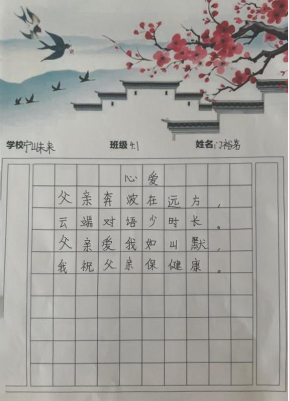 学校 宁山未来 班级 4.1 姓名
心爱
父亲奔波在远方,
云端对语少时长。
父亲爱我如山默,
我祝父亲保健康。